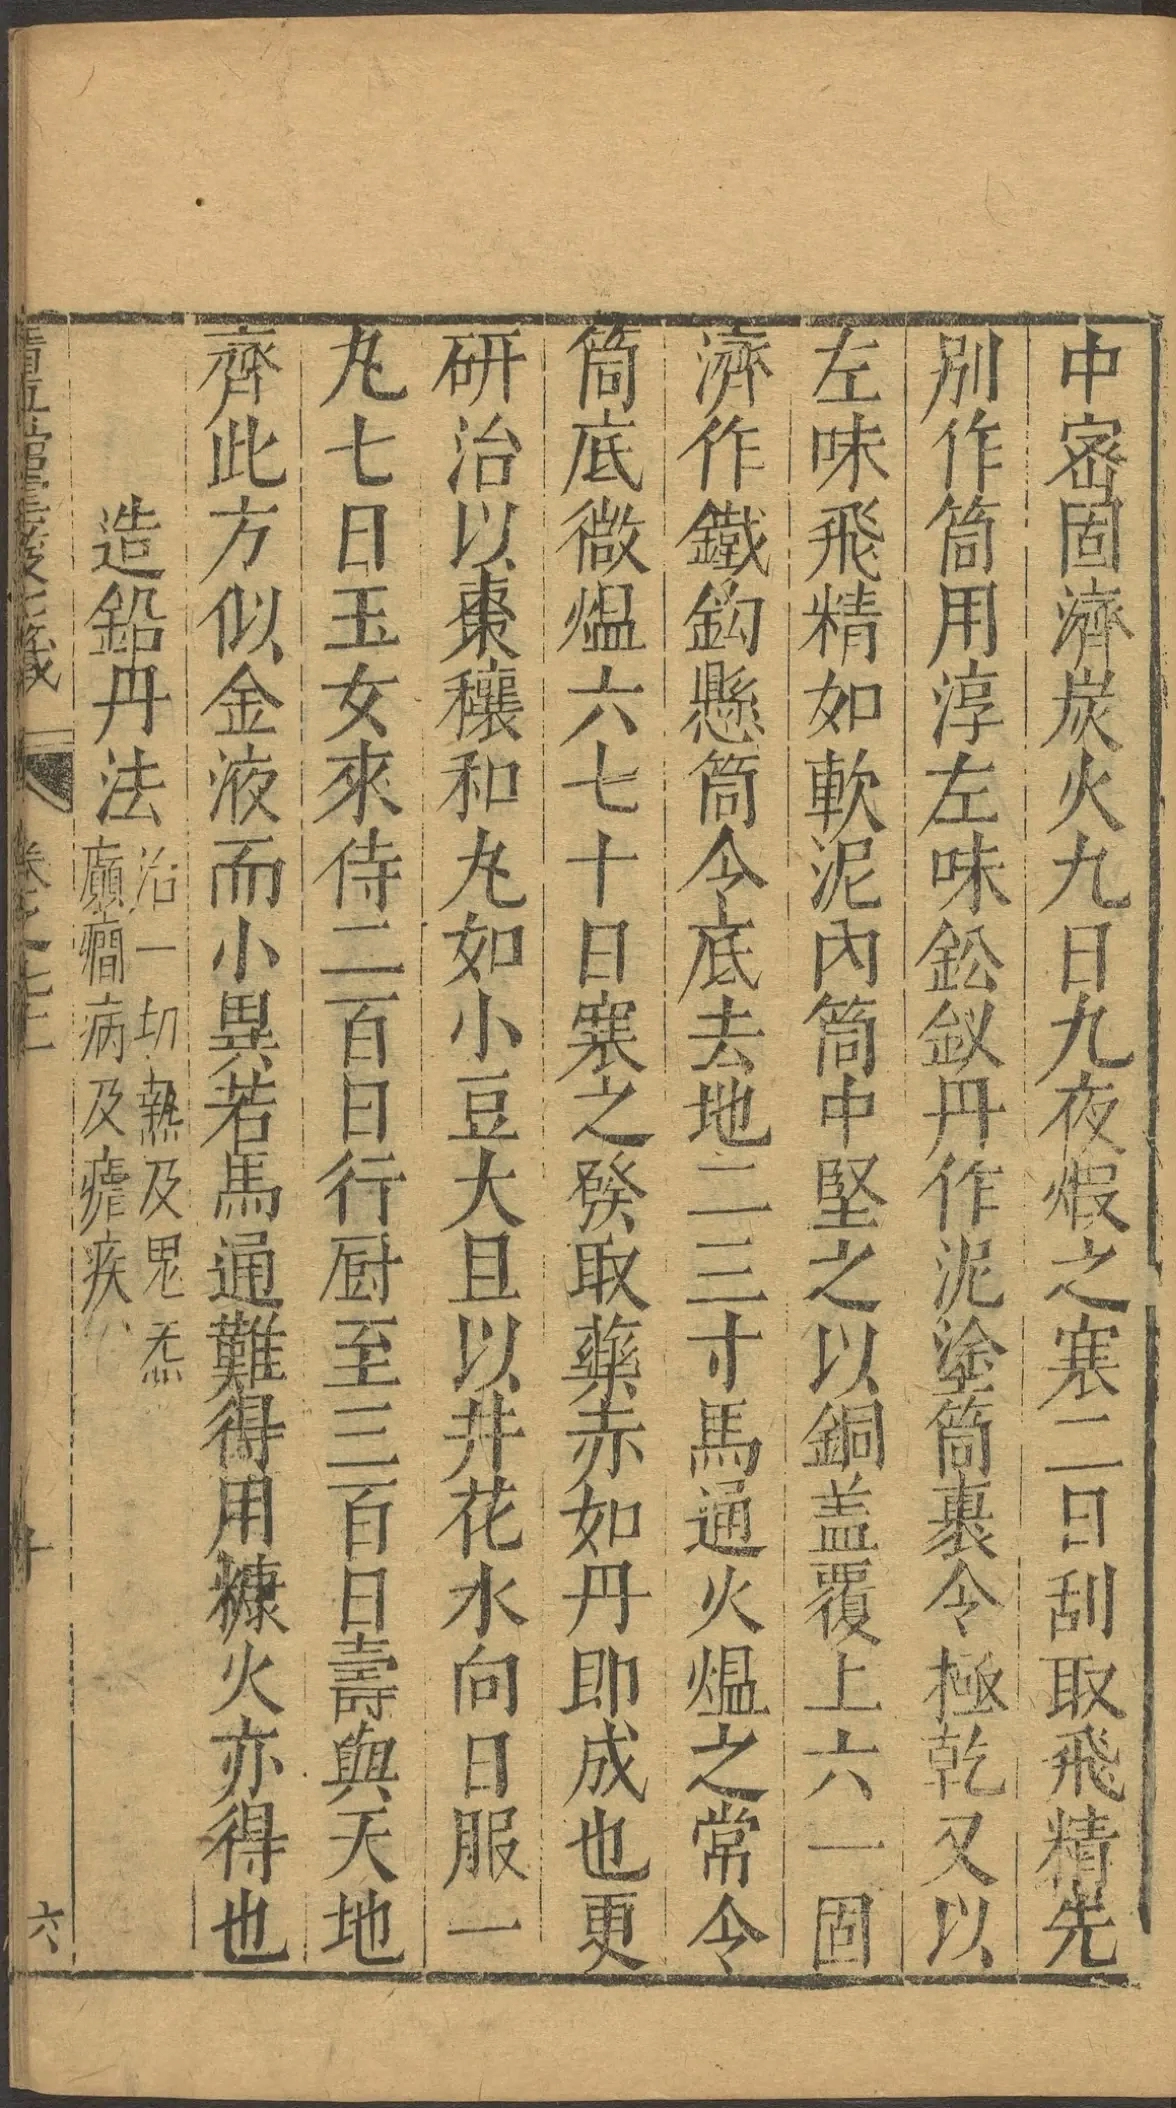 中宻固濟炭火九日九夜煆之寒二日刮取飛精先
別作筒用淳左味鈆釵丹作泥塗筒裹令極乾又以
左味飛精如軟泥內筒中堅之以銅盖覆上六一固
濟作鐵鈎懸筒令底去地二三寸馬通火熅之常令
筒底微熅六七十日寒之發取藥赤如丹即成也更
研治以棗穰和丸如小豆大且以井花水向日服一
丸七日玉女來侍二百日行厨至三百日壽與天地
齊此方似金液而小異若馬通難得用糠火亦得也
造鉛丹法
治一切熱及鬼炁
癲癎病及瘧疾
卷之七十
六